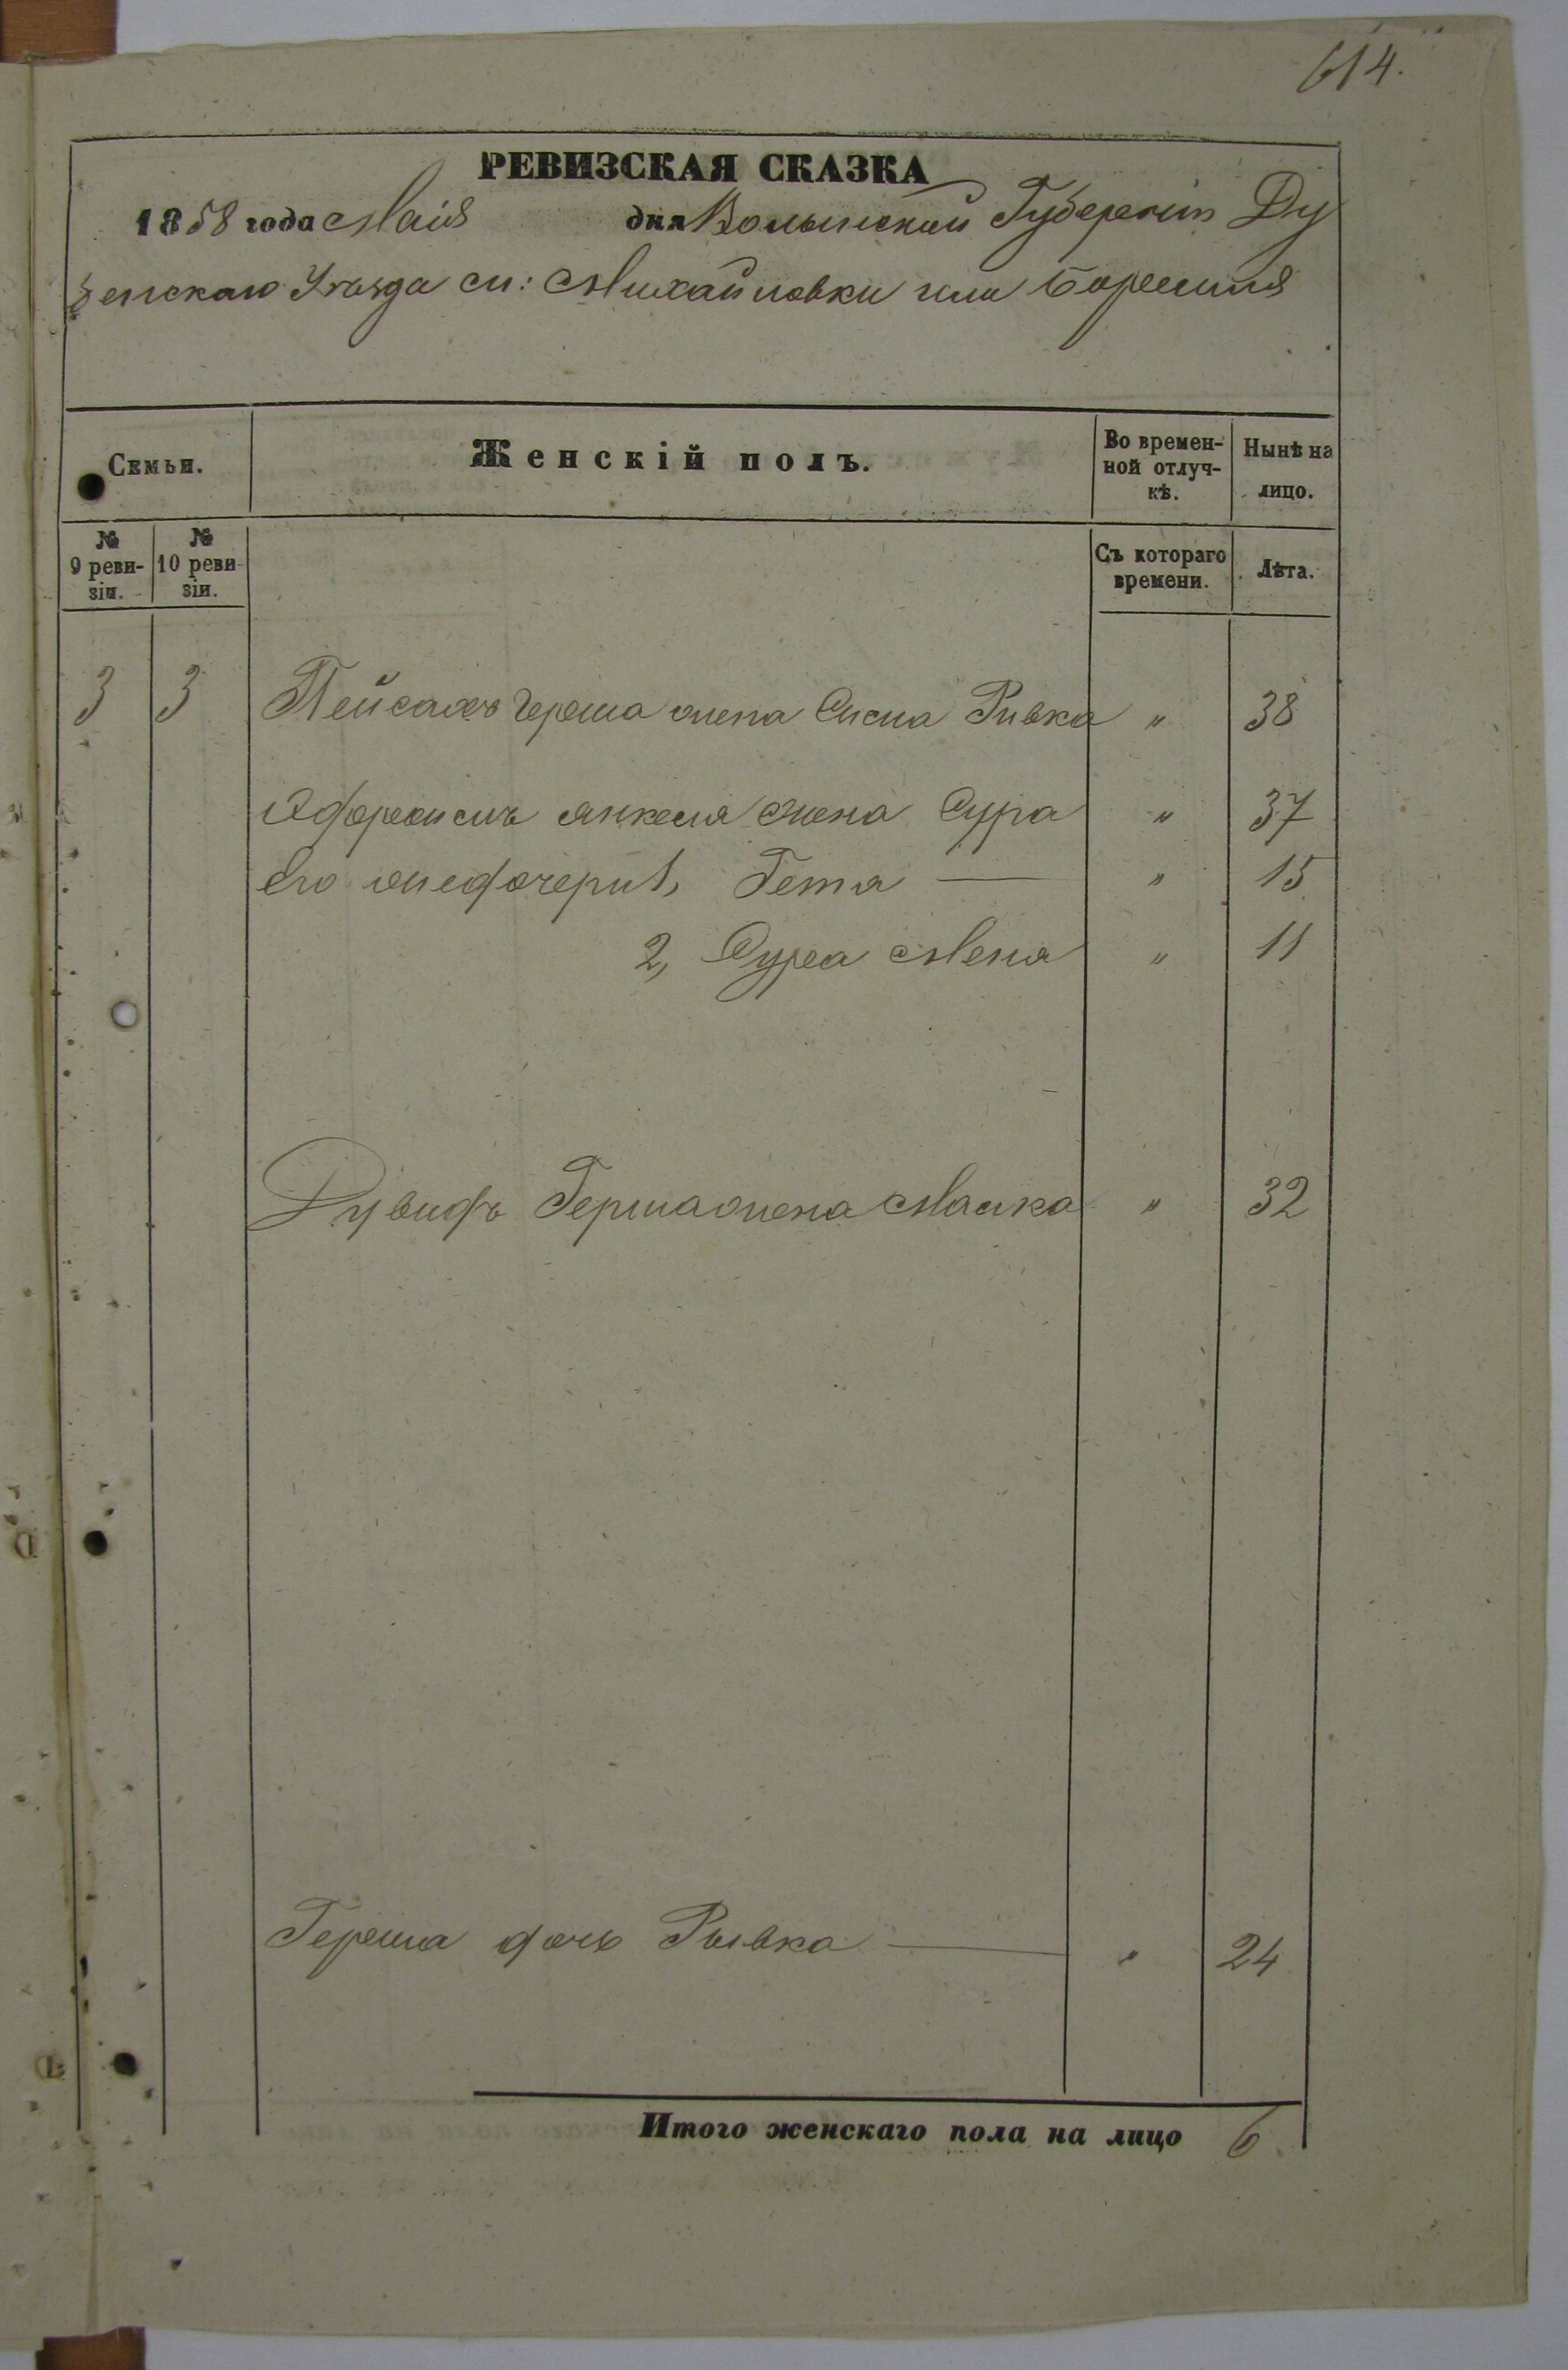 614.
РЕВИЗСКАЯ СКАЗКА
1858 года Маія дня Волынской Губерніи Ду
бенскаго Уѣзда см: Михайловки или
Семьи.
Женскій полъ.
Во времен-
ной отлуч-
кѣ.
Нынѣ на
лицо.
№
9 реви-
зіи.
№
10 реви
зіи.
Съ котораго
времени.
Лѣта.
3 3 Пейсахъ Герша жена Ривка „ 38
Янкеля жена Сура „ 37
Его дочери 1, Гетя — „ 15
2, Сура Меня „ 11
Герша жена Малка „ 32
Герша дочь Рывка — „ 24
Итого женскаго пола на лицо 6